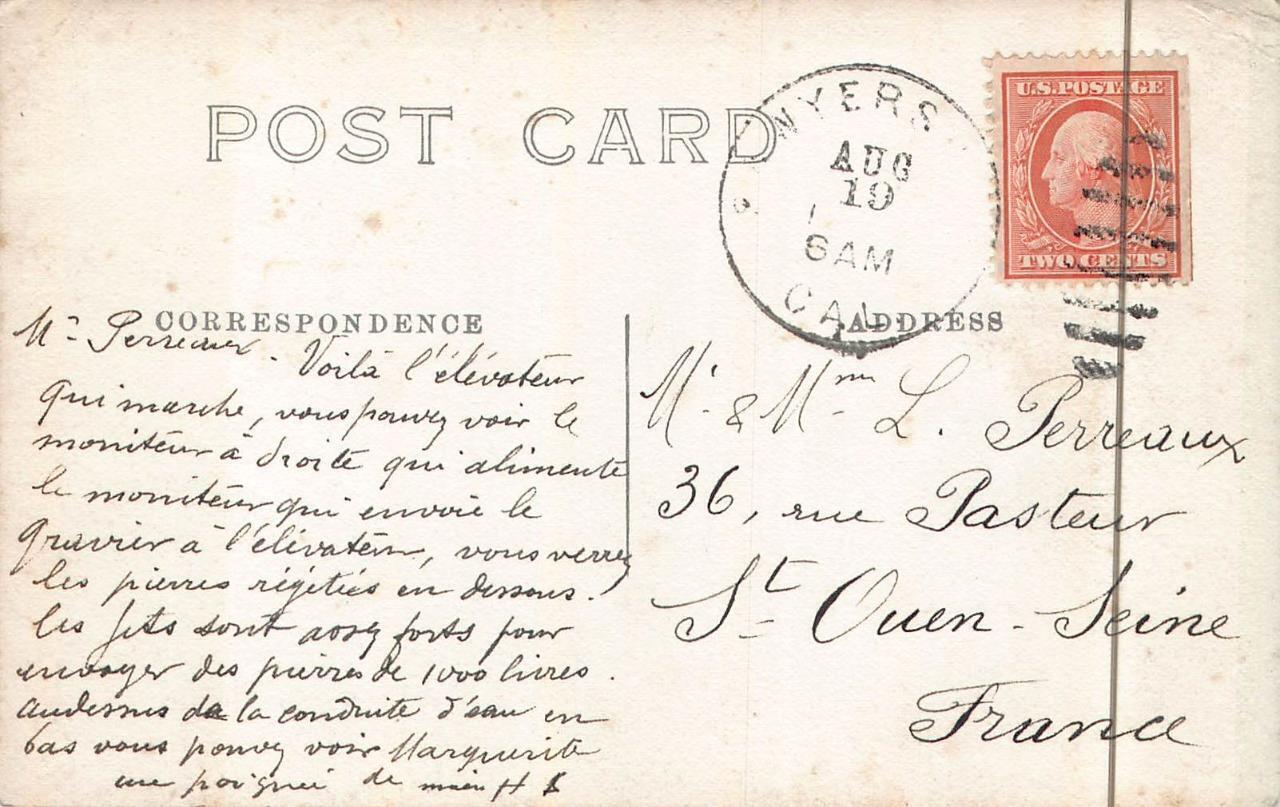 POST CARD
U.S. POSTAGE
TWO CENTS
WYERS
AUG
19
6AM
CAL
CORRESPONDENCE
ADDRESS
Mr Perreaux. Voilà l'élévateur
qui marche, vous pouvez voir le
moniteur à droite qui alimente
le moniteur qui envoie le
gravier à l'élévateur, vous verrez
les pierres régétiés en dessous.
les jets sont assez forts pour
envoyer des pierres de 1000 livres.
audessus de la conduite d'eau en
bas vous pouvez voir Marguerite
une poignée de main H
Mr & Mme L. Perreaux
36, rue Pasteur
St Ouen - Seine
France